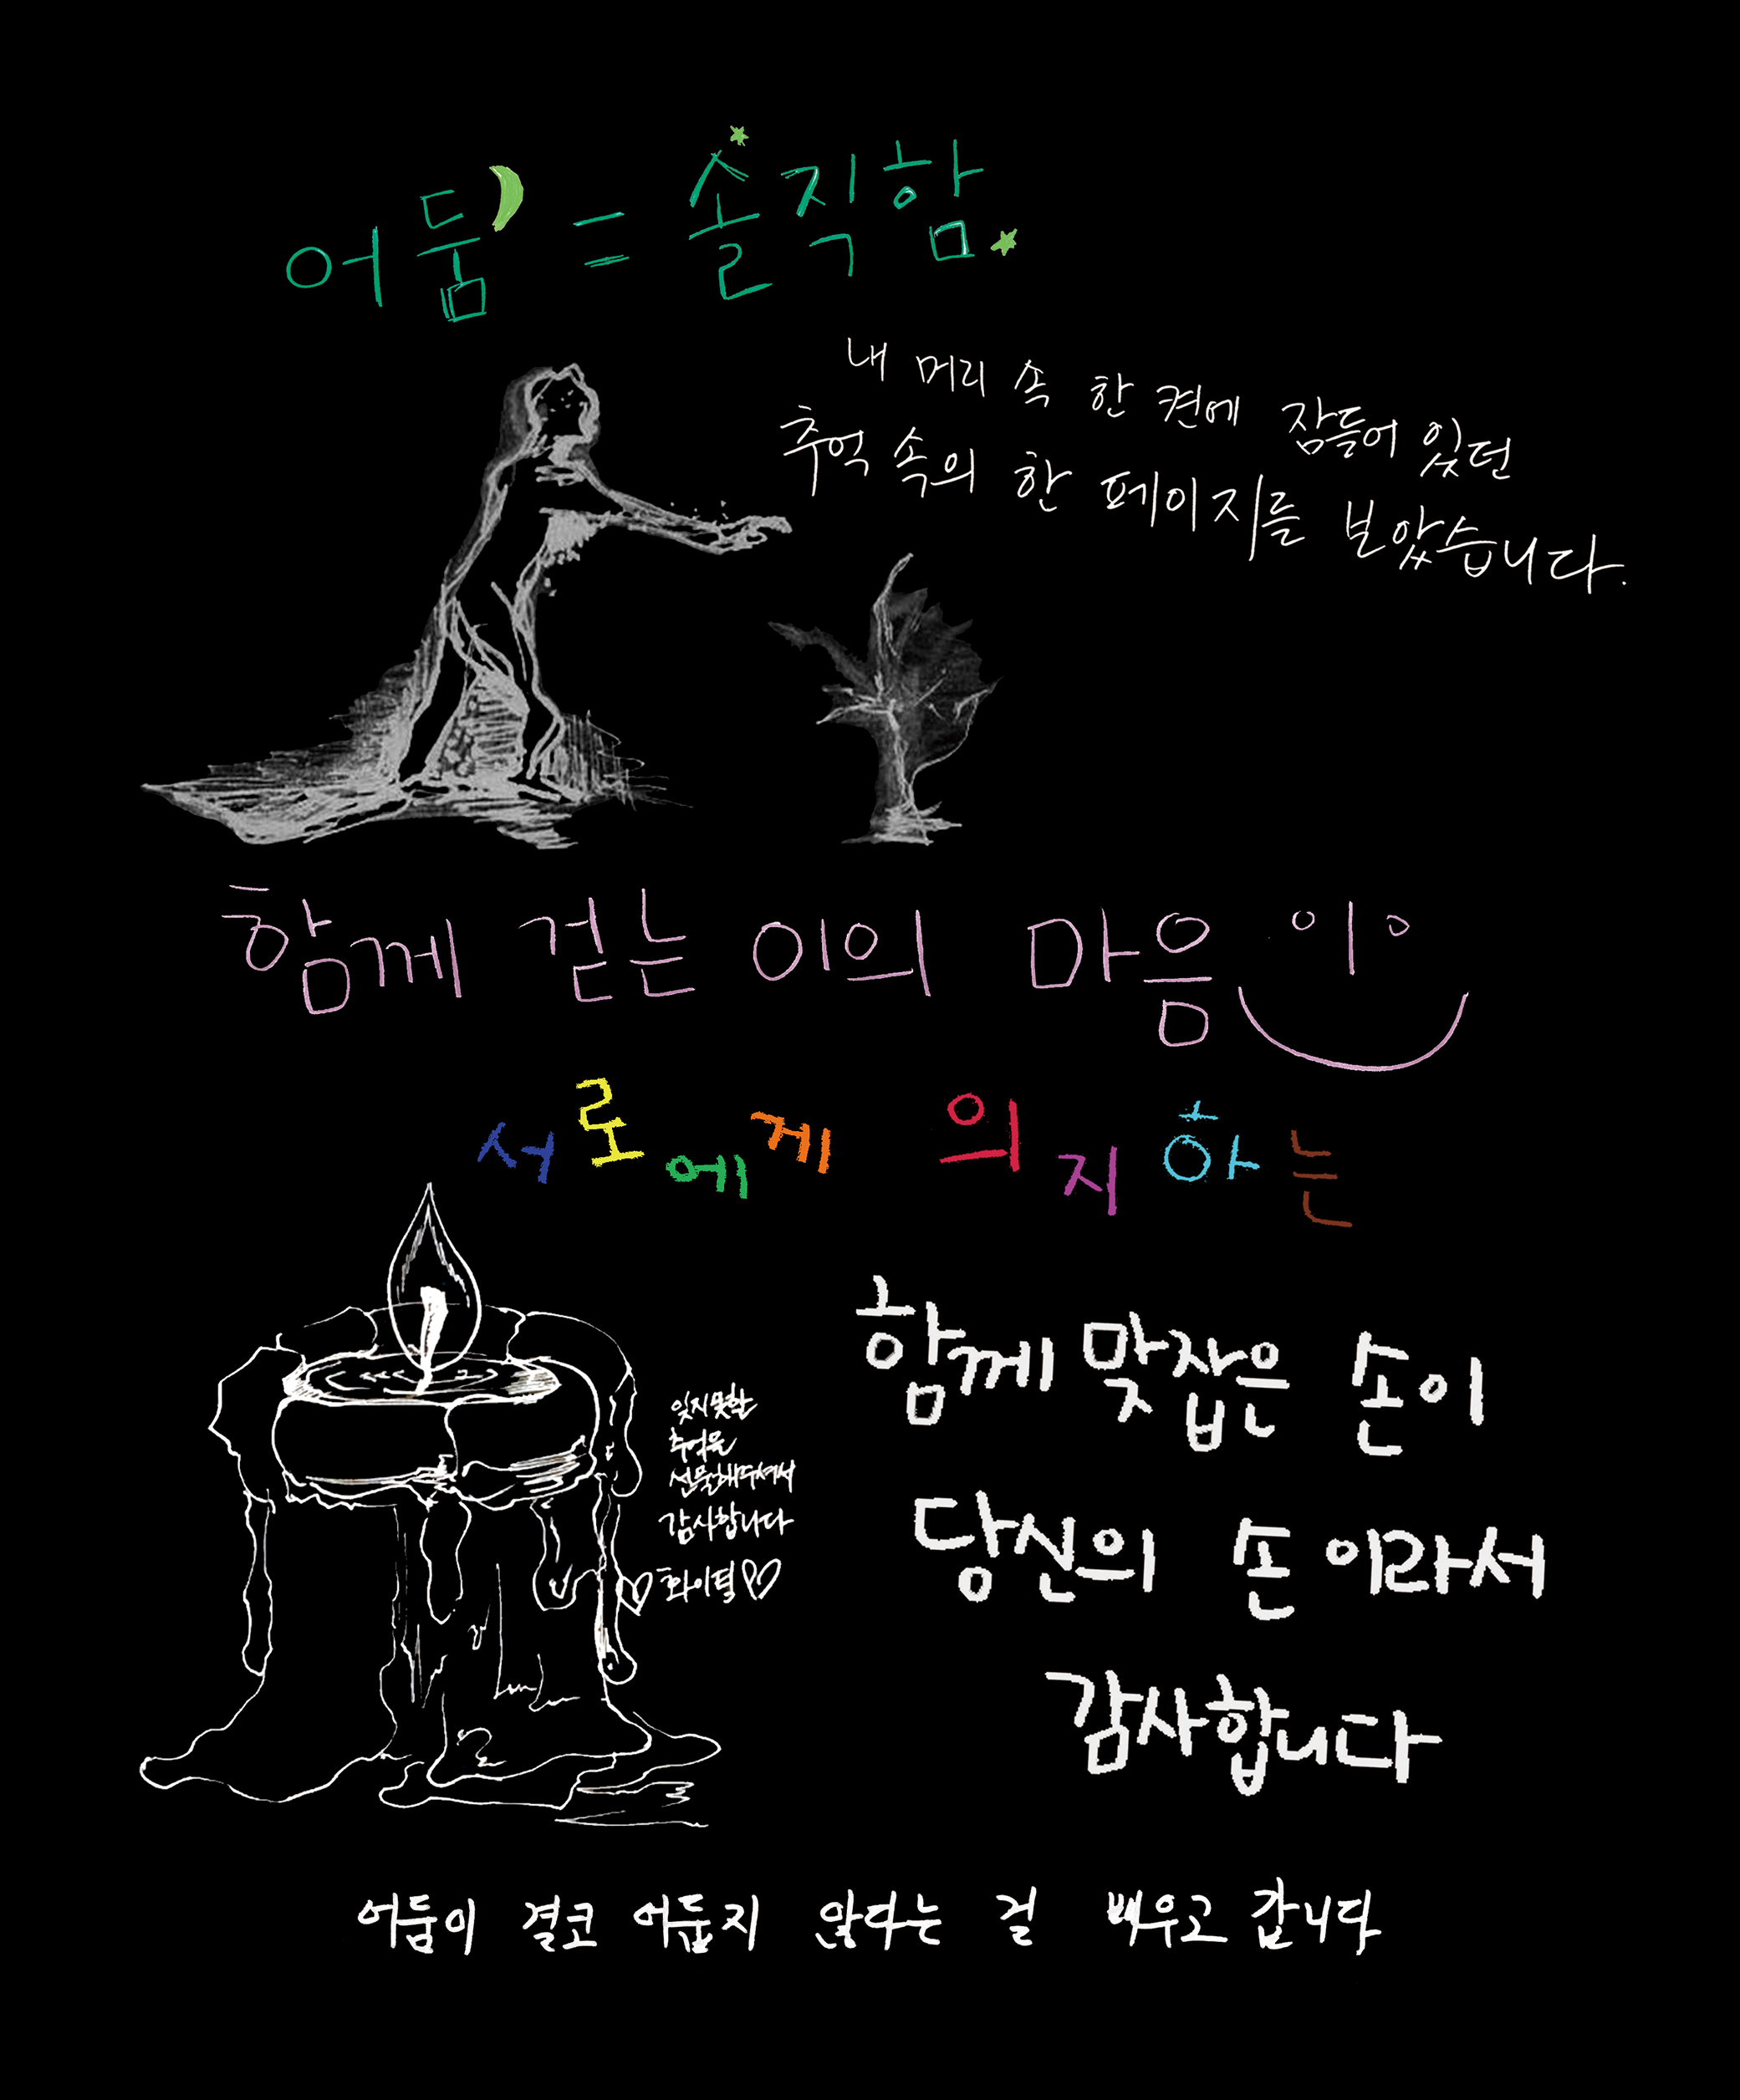 어둠 = 솔직함
내 머리 속 한 켠에 잠들어 있던
추억 속의 한 페이지를 보았습니다.
함께 걷는 이의 마음
서로에게 의지하는
함께 맞잡은 손이
당신의 손 이라서
감사합니다
잊지못할
추억을
선물해주셔서
감사합니다
화이팅
어둠이 결코 어둡지 않다는 걸 배우고 갑니다